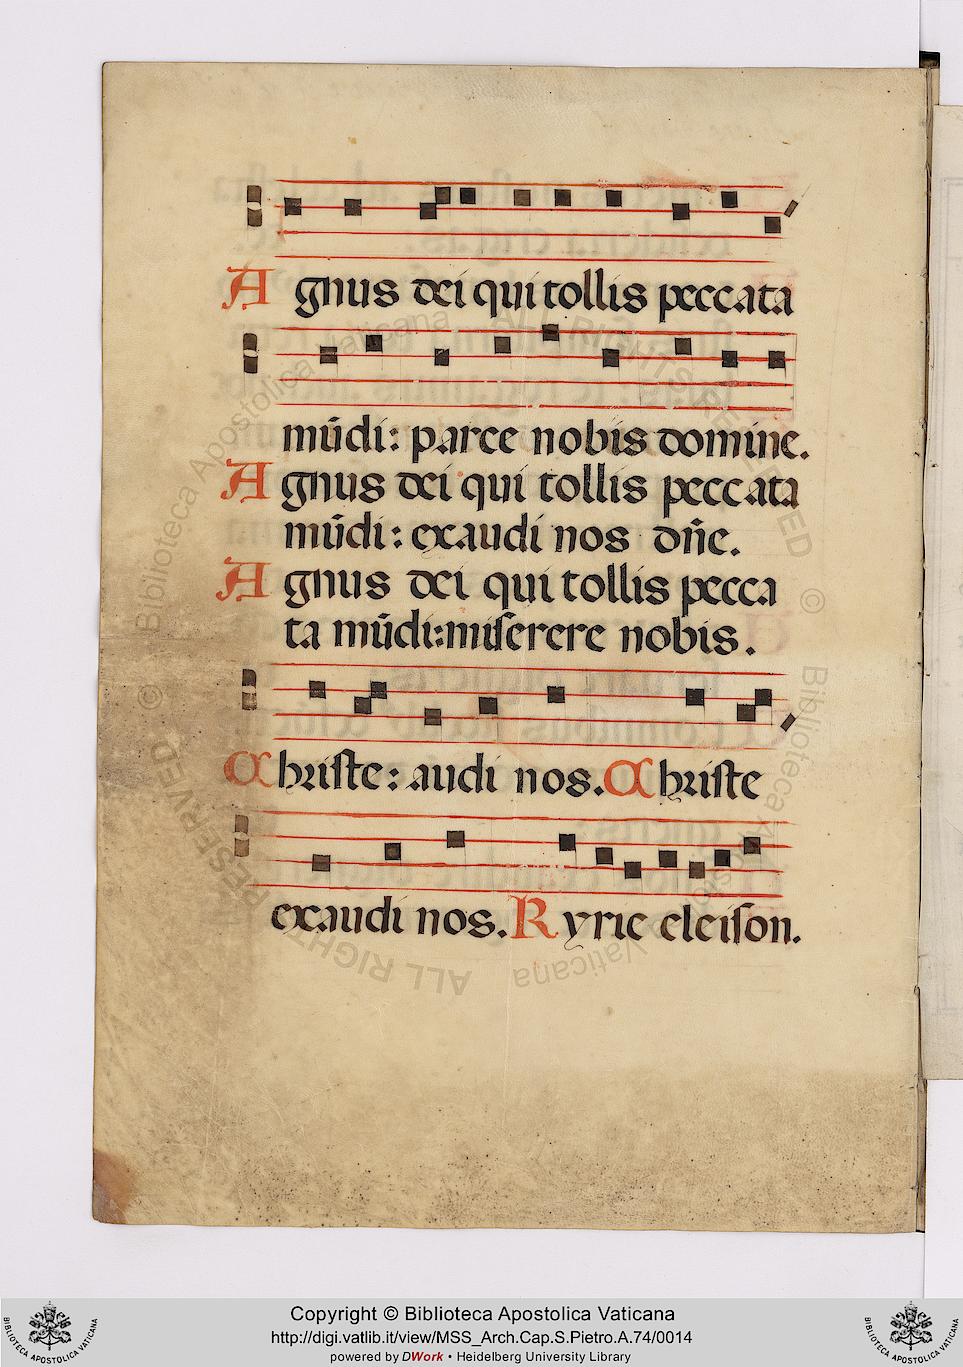 Agnus dei qui tollis peccata
mūdi: parce nobis domine.
Agnus dei qui tollis peccata
mūdi: exaudi nos dn̄e.
Agnus dei qui tollis pecca
ta mūdi: miſerere nobis.
Chriſte: audi nos. Chriſte
exaudi nos. Kyrie eleiſon.
Copyright © Biblioteca Apostolica Vaticana
http://digi.vatlib.it/view/MSS_Arch.Cap.S.Pietro.A.74/0014
powered by DWork • Heidelberg University Library
BIBLIOTECA APOSTOLICA VATICANA
BIBLIOTECA APOSTOLICA VATICANA
© Biblioteca Apostolica Vaticana ALL RIGHTS RESERVED
© Biblioteca Apostolica Vaticana ALL RIGHTS RESERVED